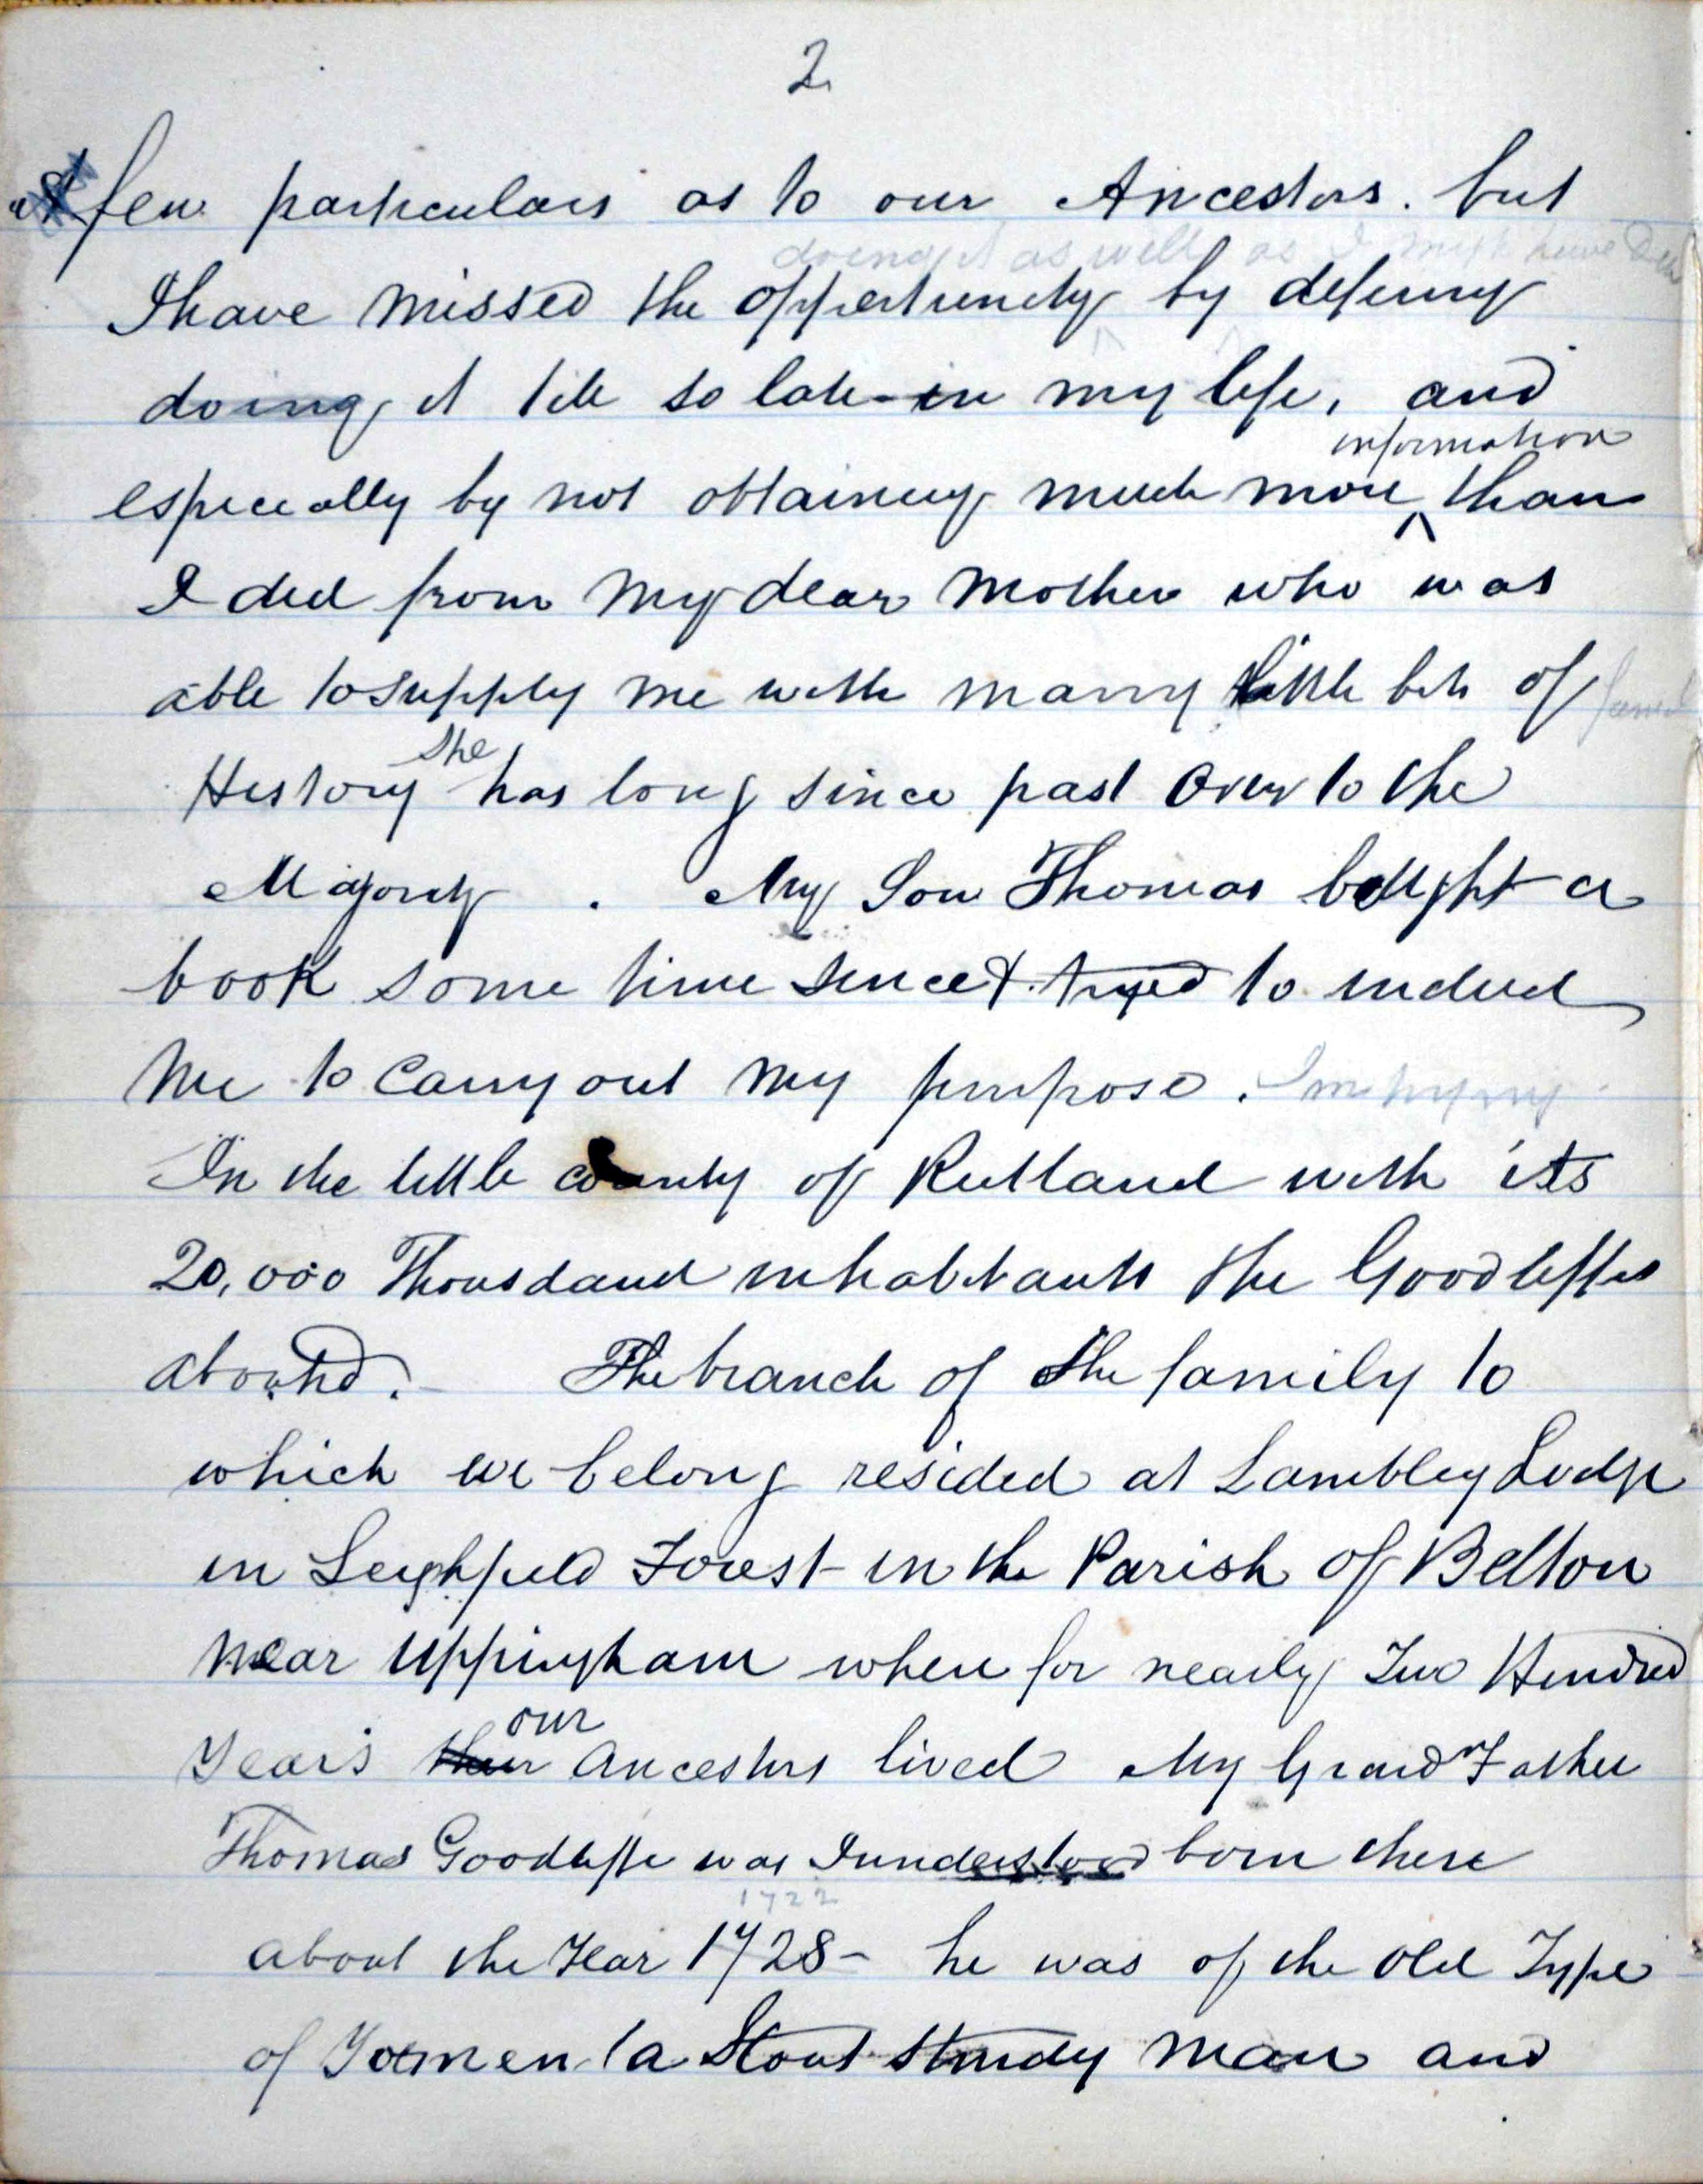 2
a few particulars as to our Ancestors. but
doing it as well as I might have done
I have missed the opportunity by defering
doing it till so late in my life, and
information
especially by not obtaining much more ^ than
I did from my dear Mother who was
able to supply me with many little bits of
she
History has long since past over to the
Majority. My Son Thomas bought a
book some time since & tryed to induce
me to Carry out my purpose.
In the little county of Rutland with its
20,000 Thousdand inhabitants the Goodliffes
abound. The branch of the family to
which we belong resided at Lambley Lodge
in Leighfield Forest in the Parish of Belton
near Uppingham where for nearly Two Hundred
our
Years their Ancestors lived My Grand Father
Thomas Goodliffe was I understood born there
1722
about the Year 1728 - he was of the old Type
of Yoemen (a Stout sturdy man and